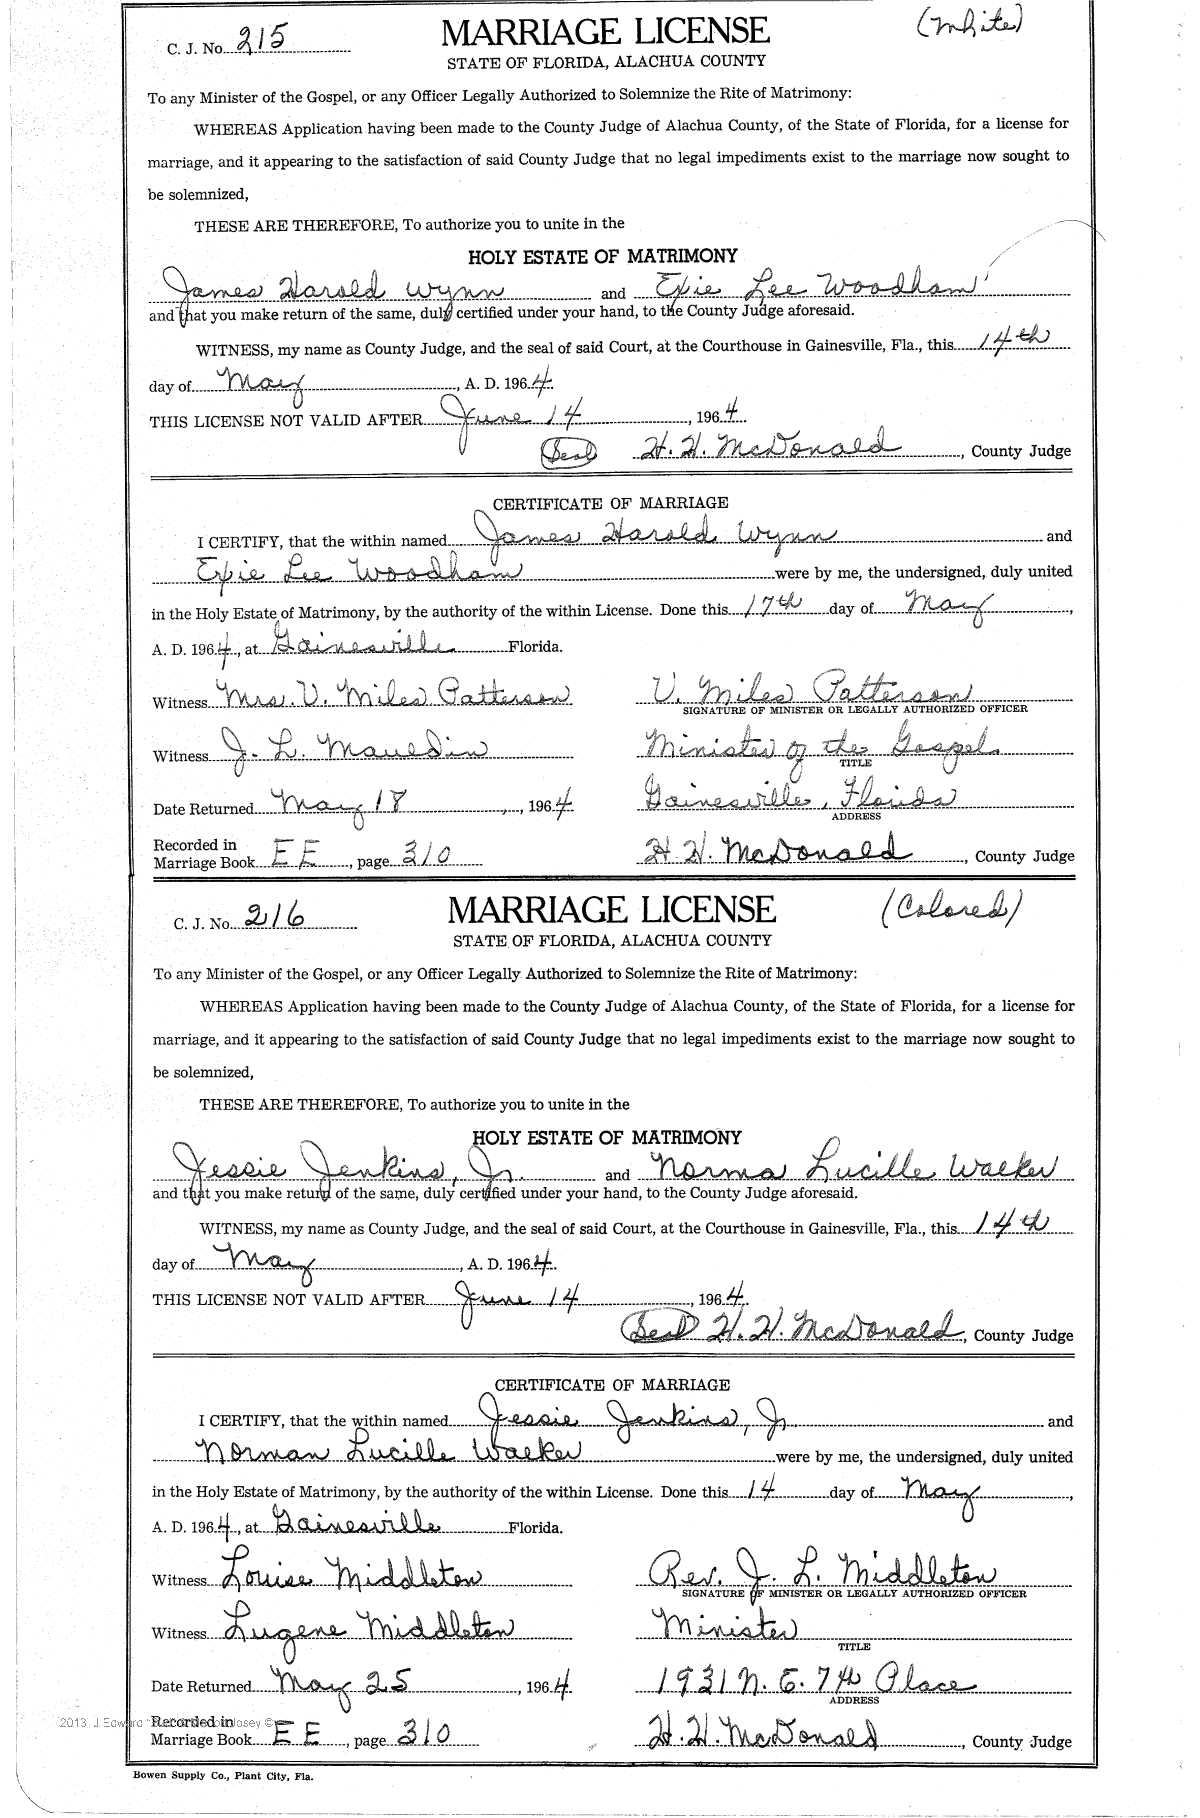 C. J. No. 215
MARRIAGE LICENSE
(White)
STATE OF FLORIDA, ALACHUA COUNTY
To any Minister of the Gospel, or any Officer Legally Authorized to Solemnize the Rite of Matrimony:
WHEREAS Application having been made to the County Judge of Alachua County, of the State of Florida, for a license for
marriage, and it appearing to the satisfaction of said County Judge that no legal impediments exist to the marriage now sought to
be solemnized,
THESE ARE THEREFORE, To authorize you to unite in the
HOLY ESTATE OF MATRIMONY
James Harold Wynn and Exie Lee Woodham
and that you make return of the same, duly certified under your hand, to the County Judge aforesaid.
WITNESS, my name as County Judge, and the seal of said Court, at the Courthouse in Gainesville, Fla., this 14th
day of May, A. D. 1964.
THIS LICENSE NOT VALID AFTER June 14, 1964.
(Seal) H. H. McDonald, County Judge
CERTIFICATE OF MARRIAGE
I CERTIFY, that the within named James Harold Wynn and
Exie Lee Woodham were by me, the undersigned, duly united
in the Holy Estate of Matrimony, by the authority of the within License. Done this 17th day of May,
A. D. 1964, at Gainesville Florida.
Witness Mrs. V. Miles Patterson V. Miles Patterson
SIGNATURE OF MINISTER OR LEGALLY AUTHORIZED OFFICER
Witness J. L. Mauldin Minister of the Gospel
TITLE
Date Returned May 18, 1964 Gainesville, Florida
ADDRESS
Recorded in
Marriage Book EE, page 310 H. H. McDonald, County Judge
C. J. No. 216
MARRIAGE LICENSE
(Colored)
STATE OF FLORIDA, ALACHUA COUNTY
To any Minister of the Gospel, or any Officer Legally Authorized to Solemnize the Rite of Matrimony:
WHEREAS Application having been made to the County Judge of Alachua County, of the State of Florida, for a license for
marriage, and it appearing to the satisfaction of said County Judge that no legal impediments exist to the marriage now sought to
be solemnized,
THESE ARE THEREFORE, To authorize you to unite in the
HOLY ESTATE OF MATRIMONY
Jessie Jenkins, Jr. and Norma Lucille Walker
and that you make return of the same, duly certified under your hand, to the County Judge aforesaid.
WITNESS, my name as County Judge, and the seal of said Court, at the Courthouse in Gainesville, Fla., this 14th
day of May, A. D. 1964.
THIS LICENSE NOT VALID AFTER June 14, 1964.
(Seal) H. H. McDonald, County Judge
CERTIFICATE OF MARRIAGE
I CERTIFY, that the within named Jessie Jenkins, Jr and
Norman Lucille Walker were by me, the undersigned, duly united
in the Holy Estate of Matrimony, by the authority of the within License. Done this 14 day of May,
A. D. 1964, at Gainesville Florida.
Witness Louise Middleton Rev. J. L. Middleton
SIGNATURE OF MINISTER OR LEGALLY AUTHORIZED OFFICER
Witness Lugene Middleton Minister
TITLE
Date Returned May 25, 1964. 1931 N. E. 7th Place
ADDRESS
2013 J Edward
Recorded in
Marriage Book EE, page 310 H. H. McDonald, County Judge
Bowen Supply Co., Plant City, Fla.